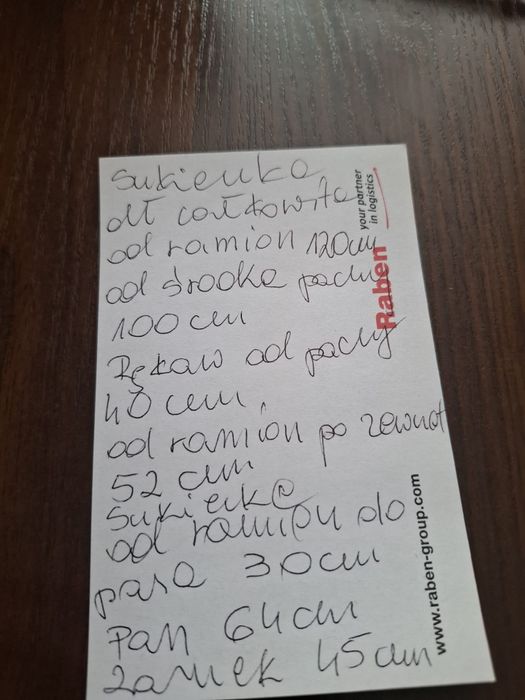 Sukienka
dł całkowita
od ramion 120cm
od środka pachy
100 cm
Rękaw od pachy
40 cem,
od ramion po zewnąt
52 cm
Sukienka
od ramion do
pasa 30cm
Pas 64cm
Zamek 45cm
Raben
your partner
in logistics
www.raben-group.com